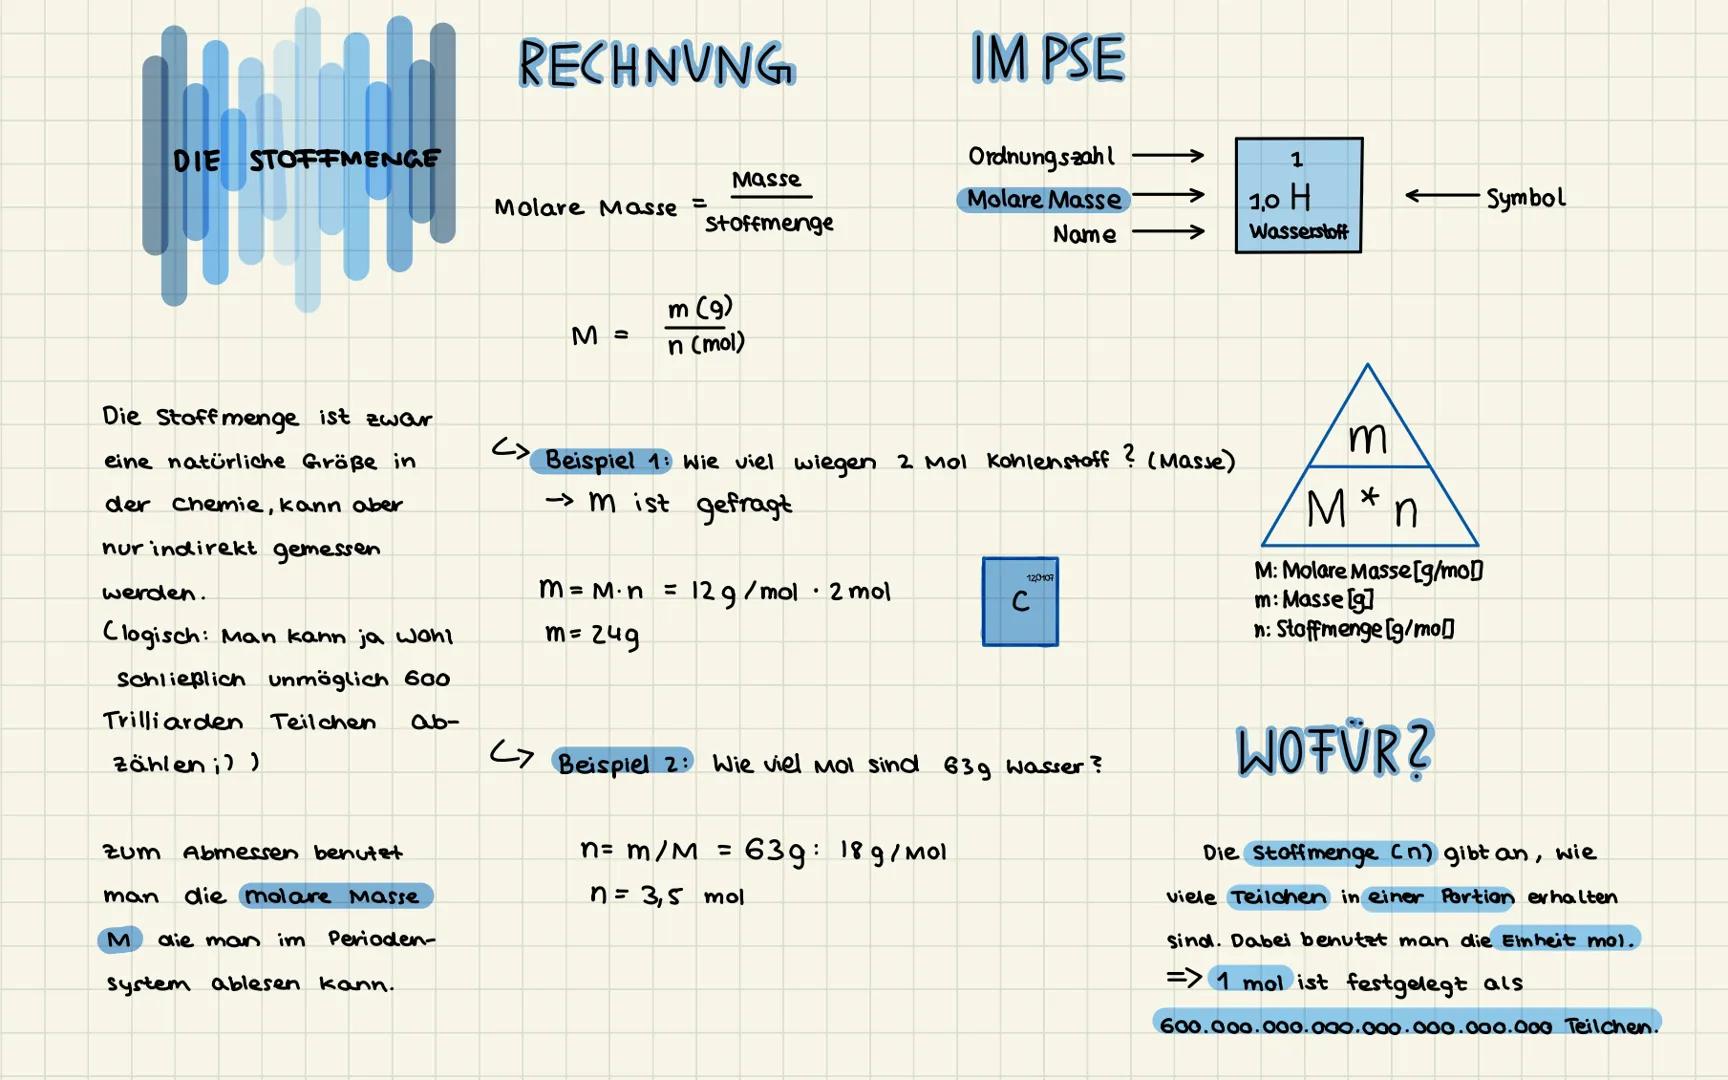 DIE STOFFMENGE
Die Stoffmenge ist zwar
eine natürliche Größe in
der Chemie, kann aber
nur indirekt gemessen
werden.
(logisch: Man kann ja wohl
schließlich unmöglich 600
Trilliarden Teilchen ab-
zählen ;) )
zum Abmessen benutzt
man die molare Masse
M die man im Perioden-
system ablesen kann.
RECHNUNG
Molare Masse = Masse / Stoffmenge
M = m (g) / n (mol)
Beispiel 1: Wie viel wiegen 2 Mol Kohlenstoff ? (Masse)
→ m ist gefragt
m = M · n = 12 g/mol · 2 mol
m = 24g
12,0107
C
Beispiel 2: Wie viel Mol sind 63g Wasser?
n = m/M = 63g : 18 g/Mol
n = 3,5 mol
IM PSE
Ordnungszahl →
Molare Masse →
Name →
1
1,0 H
Wasserstoff
← Symbol
m
M * n
M: Molare Masse [g/mol]
m: Masse [g]
n: Stoffmenge [g/mol]
WOFÜR?
Die Stoffmenge (n) gibt an, wie
viele Teilchen in einer Portion erhalten
sind. Dabei benutzt man die Einheit mol.
=> 1 mol ist festgelegt als
600.000.000.000.000.000.000.000 Teilchen.